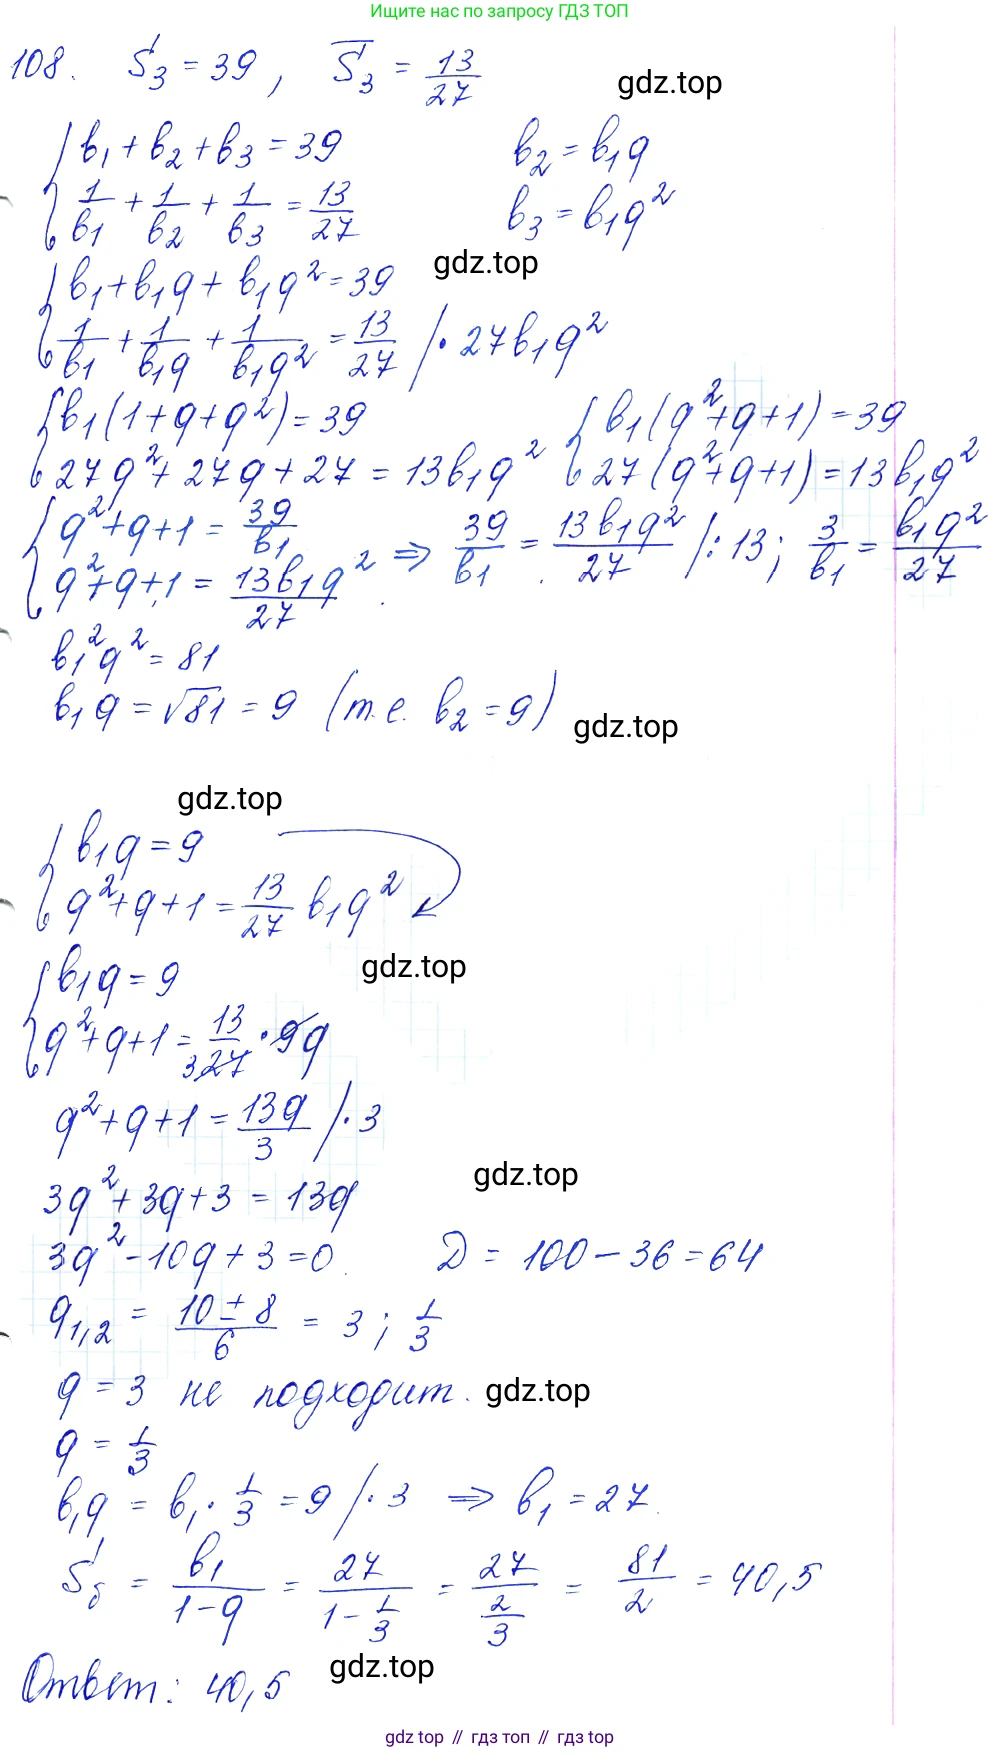 Ищите нас по запросу ГДЗ ТОП
108. S₃ = 39, S̅₃ = 13/27
gdz.top
{ b₁ + b₂ + b₃ = 39    b₂ = b₁q
{ 1/b₁ + 1/b₂ + 1/b₃ = 13/27    b₃ = b₁q²
gdz.top
{ b₁ + b₁q + b₁q² = 39
{ 1/b₁ + 1/(b₁q) + 1/(b₁q²) = 13/27 /· 27b₁q²
{ b₁(1+q+q²) = 39    { b₁(q²+q+1) = 39
{ 27q² + 27q + 27 = 13b₁q²    { 27(q²+q+1) = 13b₁q²
{ q²+q+1 = 39/b₁
{ q²+q+1 = 13b₁q²/27 . ⇒ 39/b₁ = 13b₁q²/27 /:13; 3/b₁ = b₁q²/27
b₁²q² = 81
b₁q = √81 = 9 (т.е. b₂ = 9)
gdz.top
gdz.top
{ b₁q = 9
{ q²+q+1 = 13/27 b₁q²
gdz.top
{ b₁q = 9
{ q²+q+1 = 13/₃27 · 9q
q²+q+1 = 13q/3 /· 3
gdz.top
3q² + 3q + 3 = 13q
3q² - 10q + 3 = 0.    D = 100 - 36 = 64
q₁,₂ = (10 ± 8)/6 = 3; 1/3
q = 3 не подходит.
gdz.top
q = 1/3
b₁q = b₁ · 1/3 = 9 /· 3 ⇒ b₁ = 27.
Sб = b₁/(1-q) = 27/(1 - 1/3) = 27/(2/3) = 81/2 = 40,5
Ответ: 40,5
gdz.top
gdz top // гдз топ // gdz top